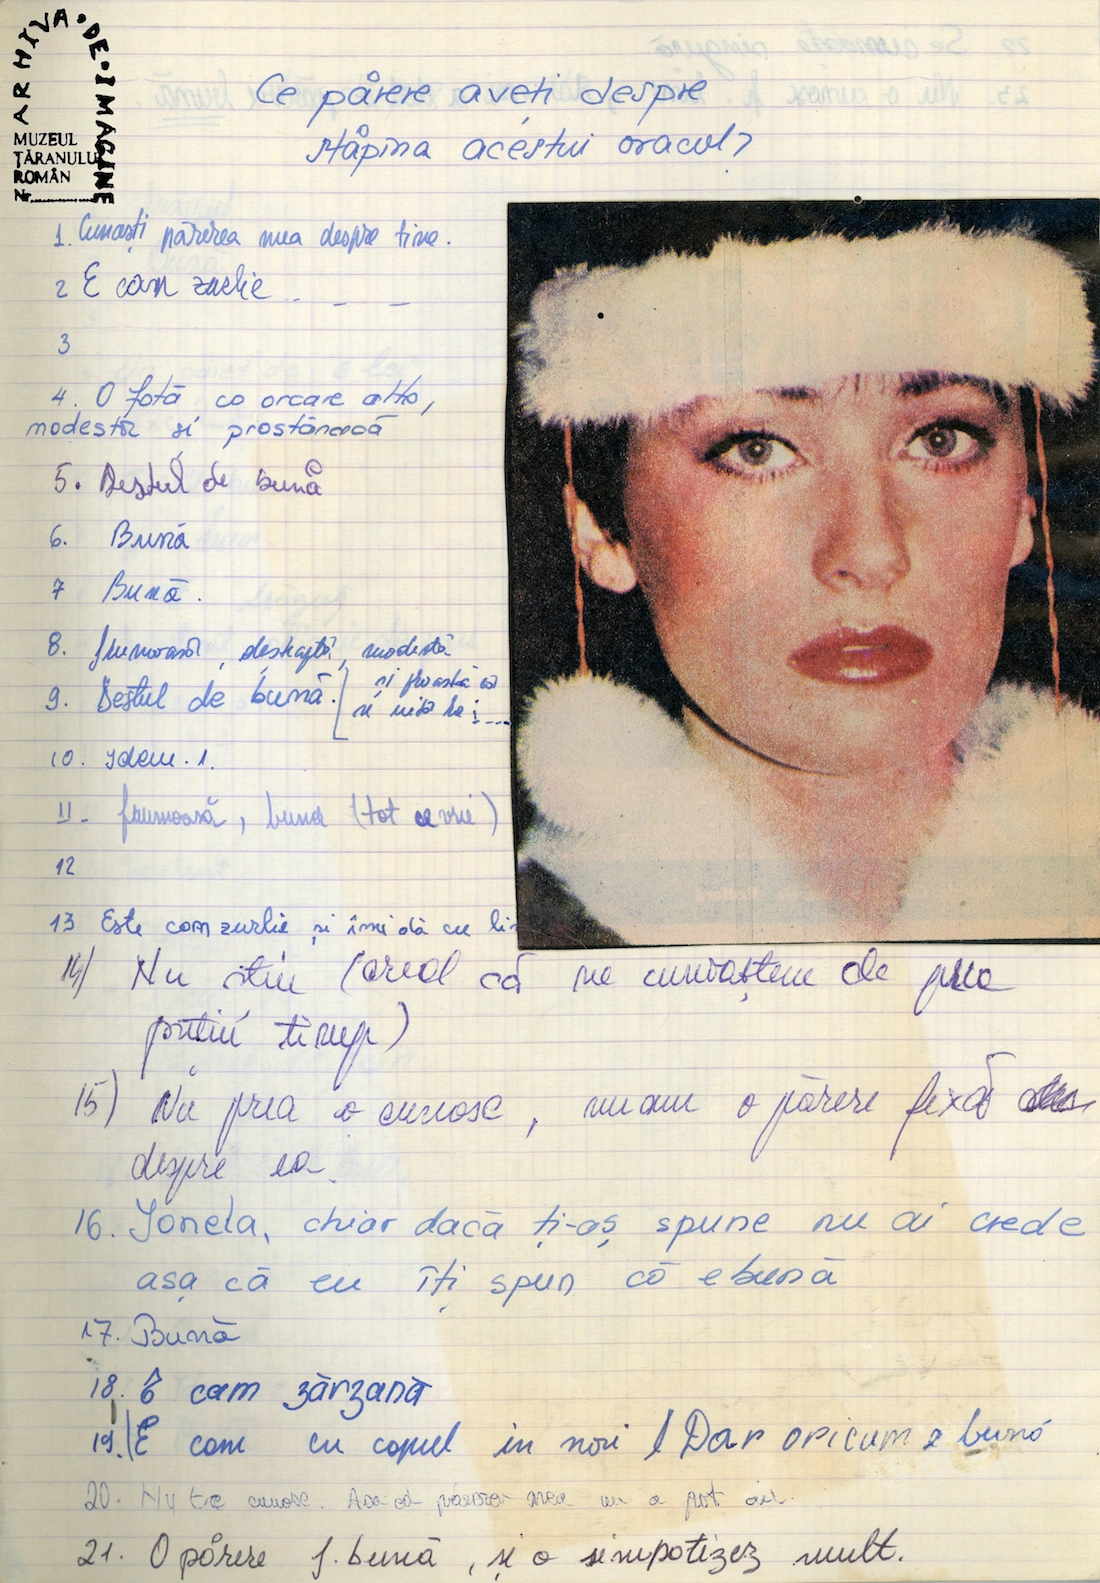 ARHIVA DE IMAGINE
MUZEUL
ȚĂRANULUI
ROMÂN
Nr.
Ce părere aveți despre
stăpîna acestui oracol?
1. Cunoști părerea mea despre tine.
2 E cam zurlie _ _ _
3
4. O fată ca orcare alta,
modestă și prostănacă
5. Destul de bună
6. Bună
7 Bună.
8. frumoasă, deșteaptă, modestă
9. Destul de bună.
și
10. Idem. 1.
11 - frumoasă, buna (tot ce vrei)
12
13 Este cam zurlie și îmi dă cu
14) Nu știu (cred că ne cunoaștem de prea
puțin timp)
15) Nu prea o cunosc, nu am o părere fixă
despre ea.
16. Ionela, chiar dacă ți-aș spune nu ai crede
așa că eu îți spun că e bună
17. Bună
18. E cam zărzană
19. E cam cu capul in nori! Dar oricum e bună
20. Nu te cunosc. Asa că părerea mea nu o pot da.
21. O părere f. bună, și o simpatizez mult.